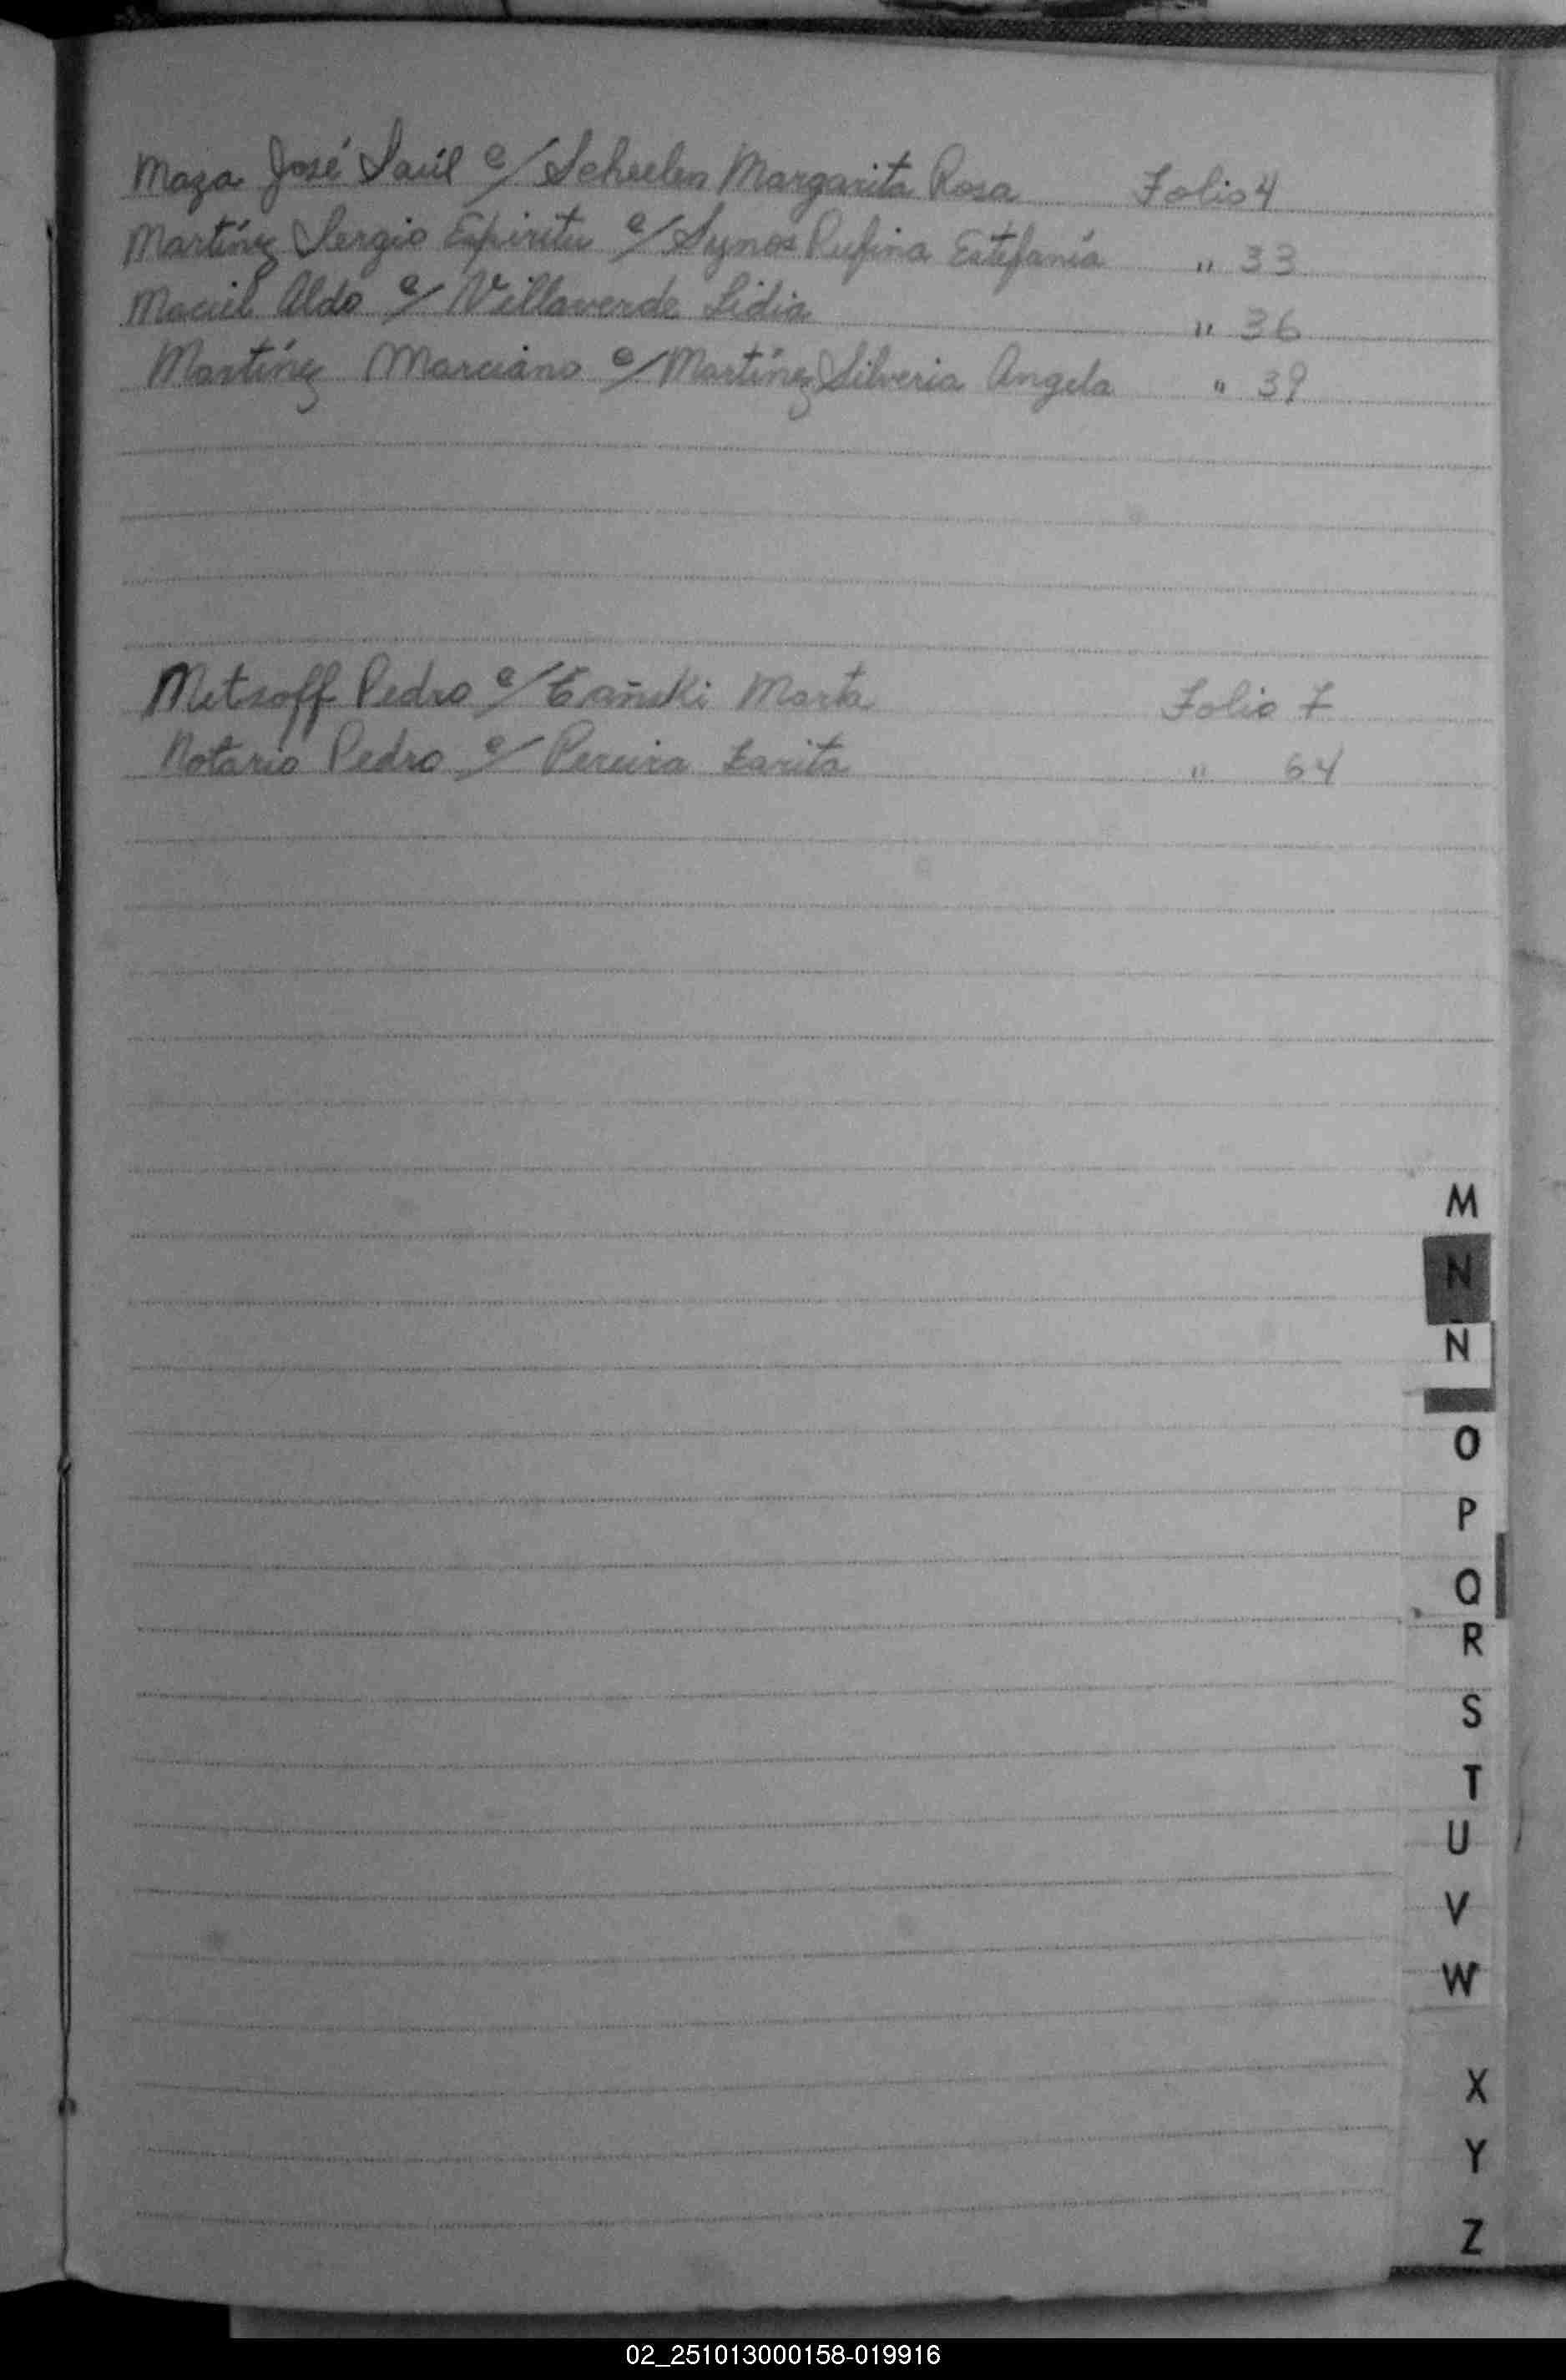 Maza José Saúl c/ Scheelen Margarita Rosa Folio 4
Martínez Sergio Espiritu c/ Rufina Estefanía " 33
Maciel Aldo c/ Villaverde Lidia " 36
Martínez Marciano c/ Martínez Silveria Angela " 39
Metzoff Pedro c/ Marta Folio 7
Notario Pedro c/ Pereira Zarita " 64
M
N
Ñ
O
P
Q
R
S
T
U
V
W
X
Y
Z
02_251013000158-019916